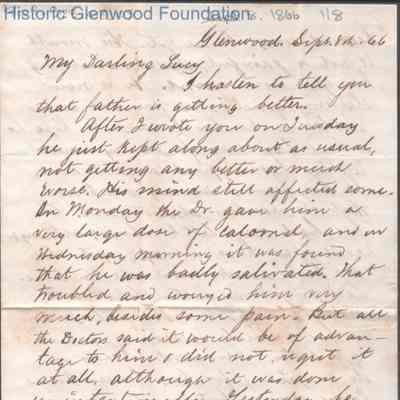 Historic Glenwood Foundation
Sept 8, 1866 118
Glenwood. Sept. 8th. 66
My Darling Lucy
I hasten to tell you
that father is getting better.
After I wrote you on Tuesday
he just kept along about as usual,
not getting any better or much
worse. His mind still affected some.
On Monday the Dr. gave him a
very large dose of Calomel and on
Wednesday morning it was found
that he was badly salivated. That
troubled and worried him very
much, besides some pain. But all
the Doctors said it would be of advan-
tage to him & did not regret it
at all, although it was done
unintentionally. Yesterday he